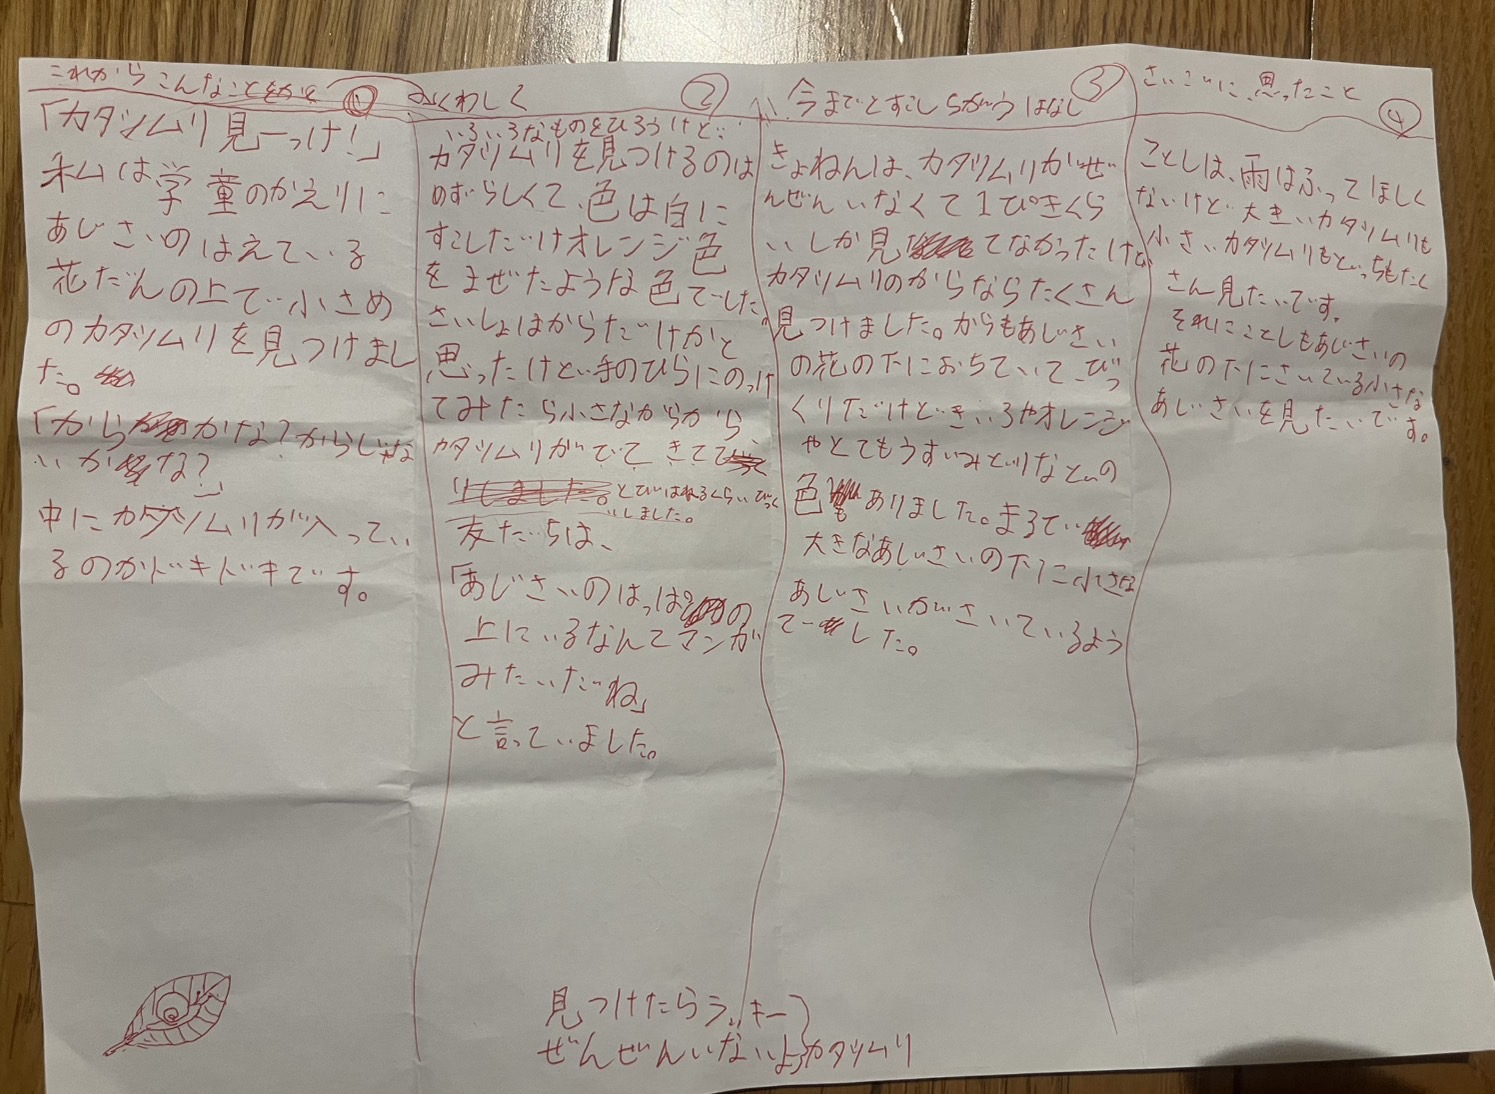 これからこんなことをかく ①
「カタツムリ見ーっけ!」
私は学童のかえりに
あじさいのはえている
花だんの上で小さめ
のカタツムリを見つけまし
た。
「からかな?からじゃな
いかな?」
中にカタツムリが入ってい
るのかドキドキです。
くわしく ②
いろいろなものをひろうけど…
カタツムリを見つけるのは
めずらしくて、色は白に
すこしだけオレンジ色
をまぜたような色でした。
さいしょはからだけかと
思ったけど手のひらにのっけ
てみたら小さなからから、
カタツムリがでてきて
とびはねるくらいびっく
りしました。
友だちは、
「あじさいのはっぱの
上にいるなんてマンガ
みたいだね」
と言っていました。
今までとすこしちがうはなし ③
きょねんは、カタツムリがぜ
んぜんいなくて1ぴきくら
いしか見てなかったけど
カタツムリのからならたくさん
見つけました。からもあじさい
の花の下におちていてびっ
くりだけどきいろやオレンジ
やとてもうすいみどりなどの
色もありました。まるで
大きなあじさいの下に小さな
あじさいがさいているよう
でした。
さいごに、思ったこと ④
ことしは、雨はふってほしく
ないけど大きいカタツムリも
小さいカタツムリもどっちもたく
さん見たいです。
それにことしもあじさいの
花の下にさいている小さな
あじさいを見たいです。
見つけたらラッキー
ぜんぜんいないよ カタツムリ